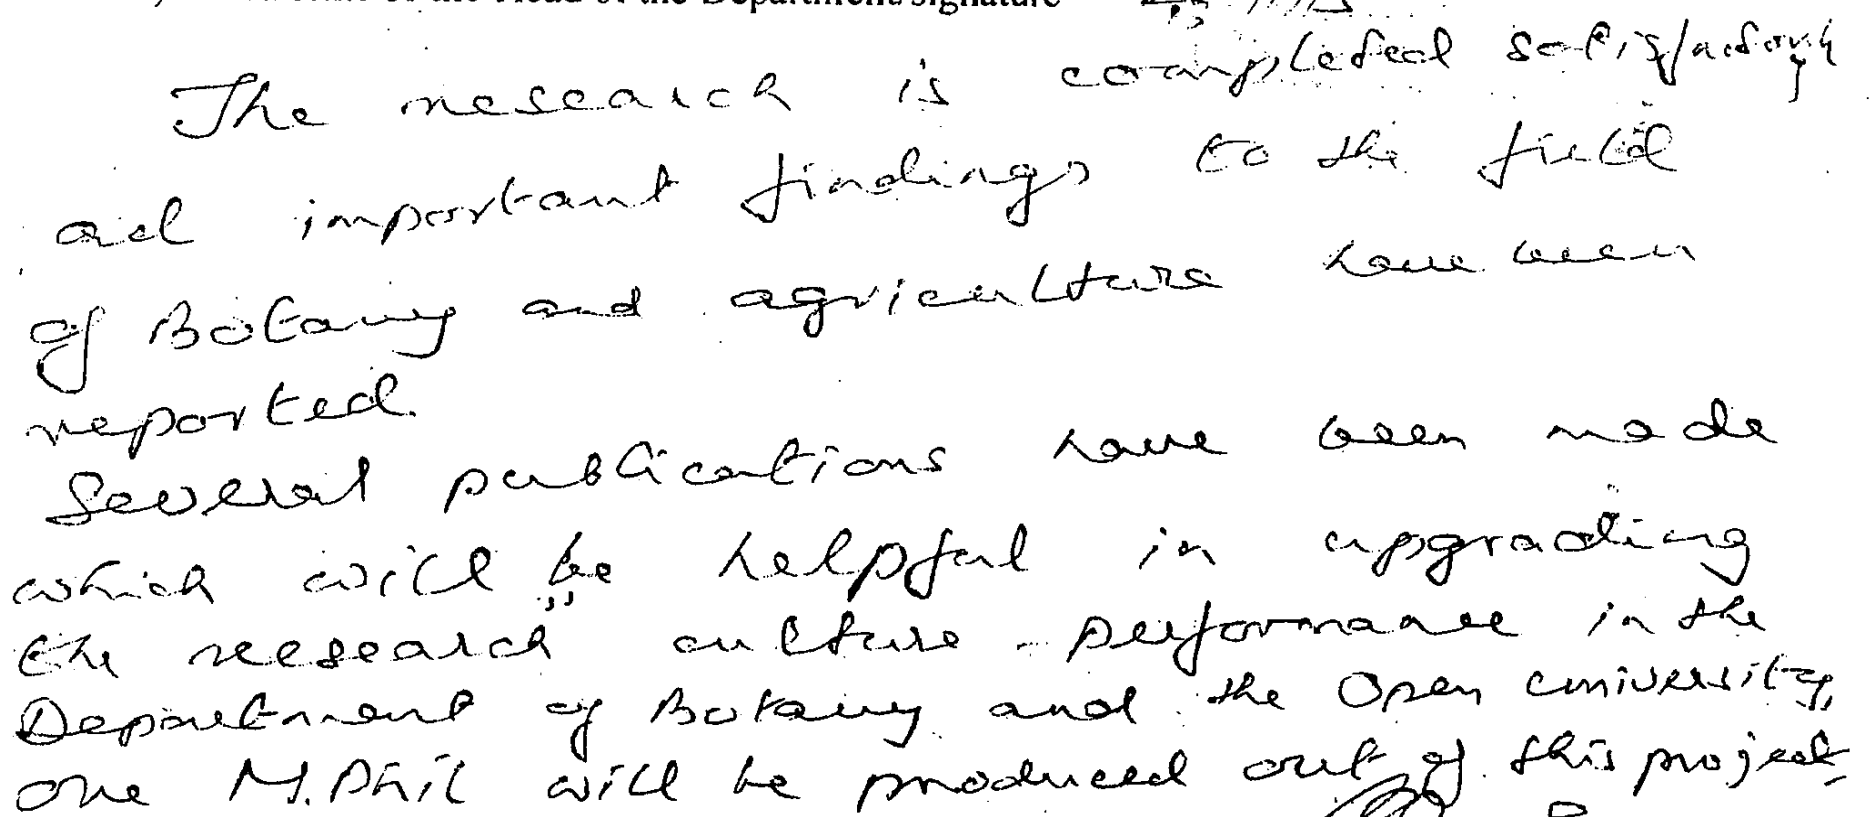 of the Head of the Department/signature
The research is completed satisfactory
and important findings to the field
of Botany and agriculture have been
reported.
Several publications have been made
which will be helpful in upgrading
the research culture - performance in the
Department of Botany and the Open university,
one M.Phil will be produced out of this project.